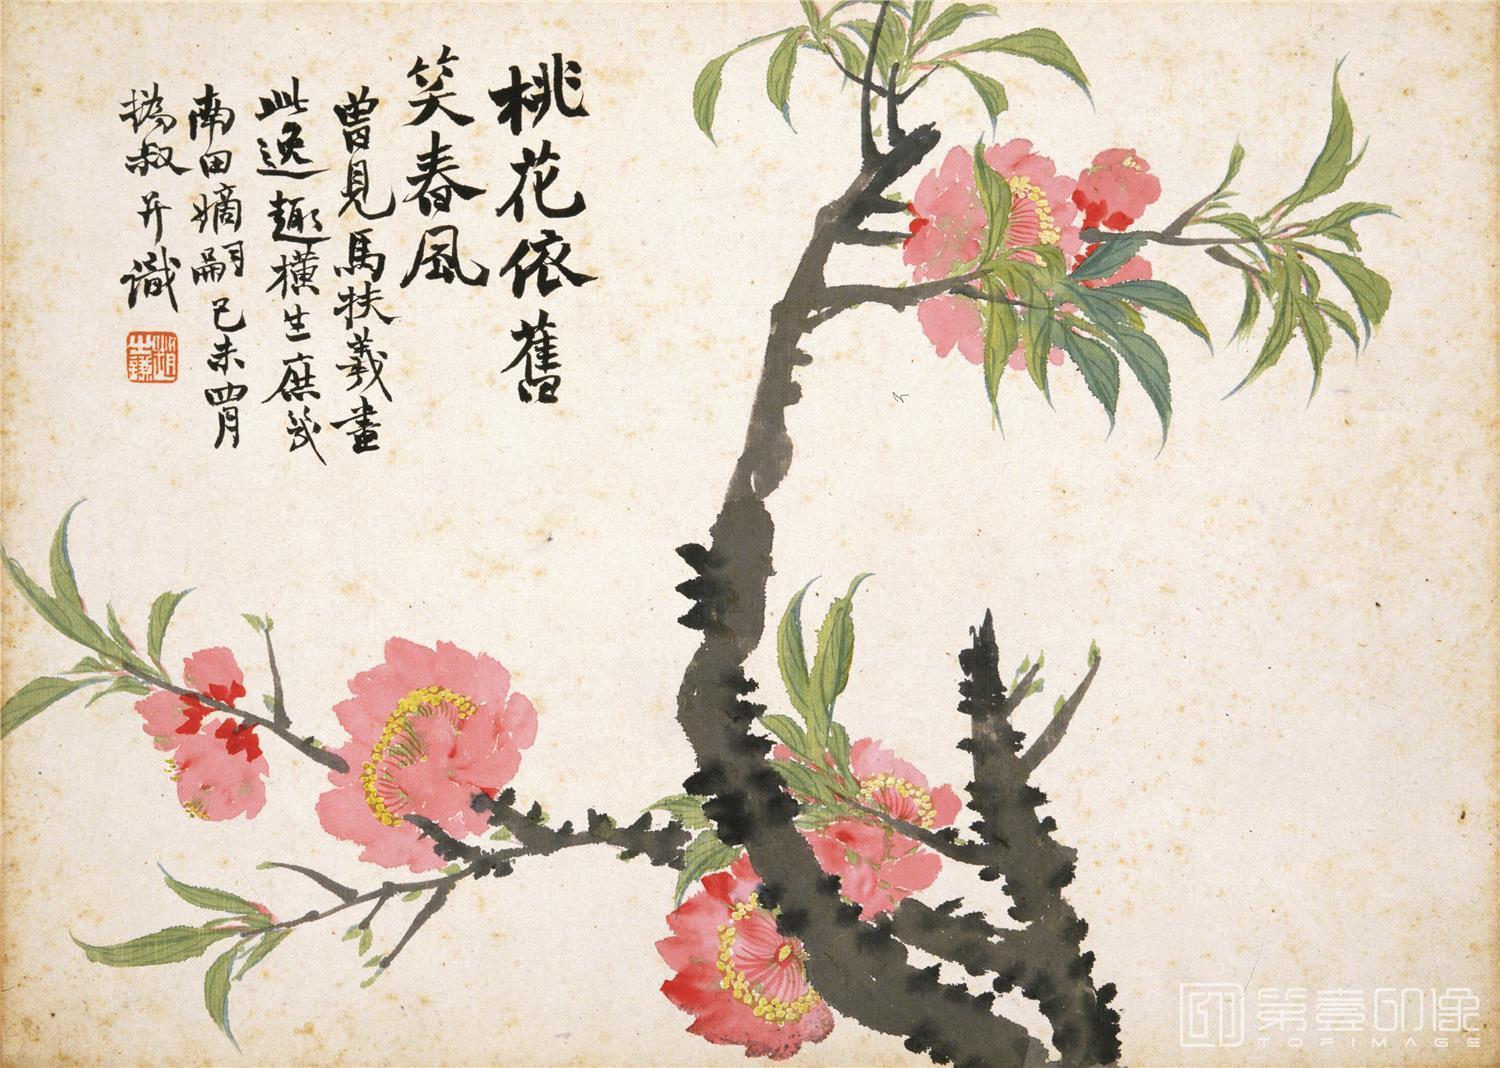 桃花依舊
笑春風
曾見馬扶羲畫
此逸趣橫生庶幾
南田嫡嗣己未四月
撝叔并識
趙
第壹印像
TOPIMAGE